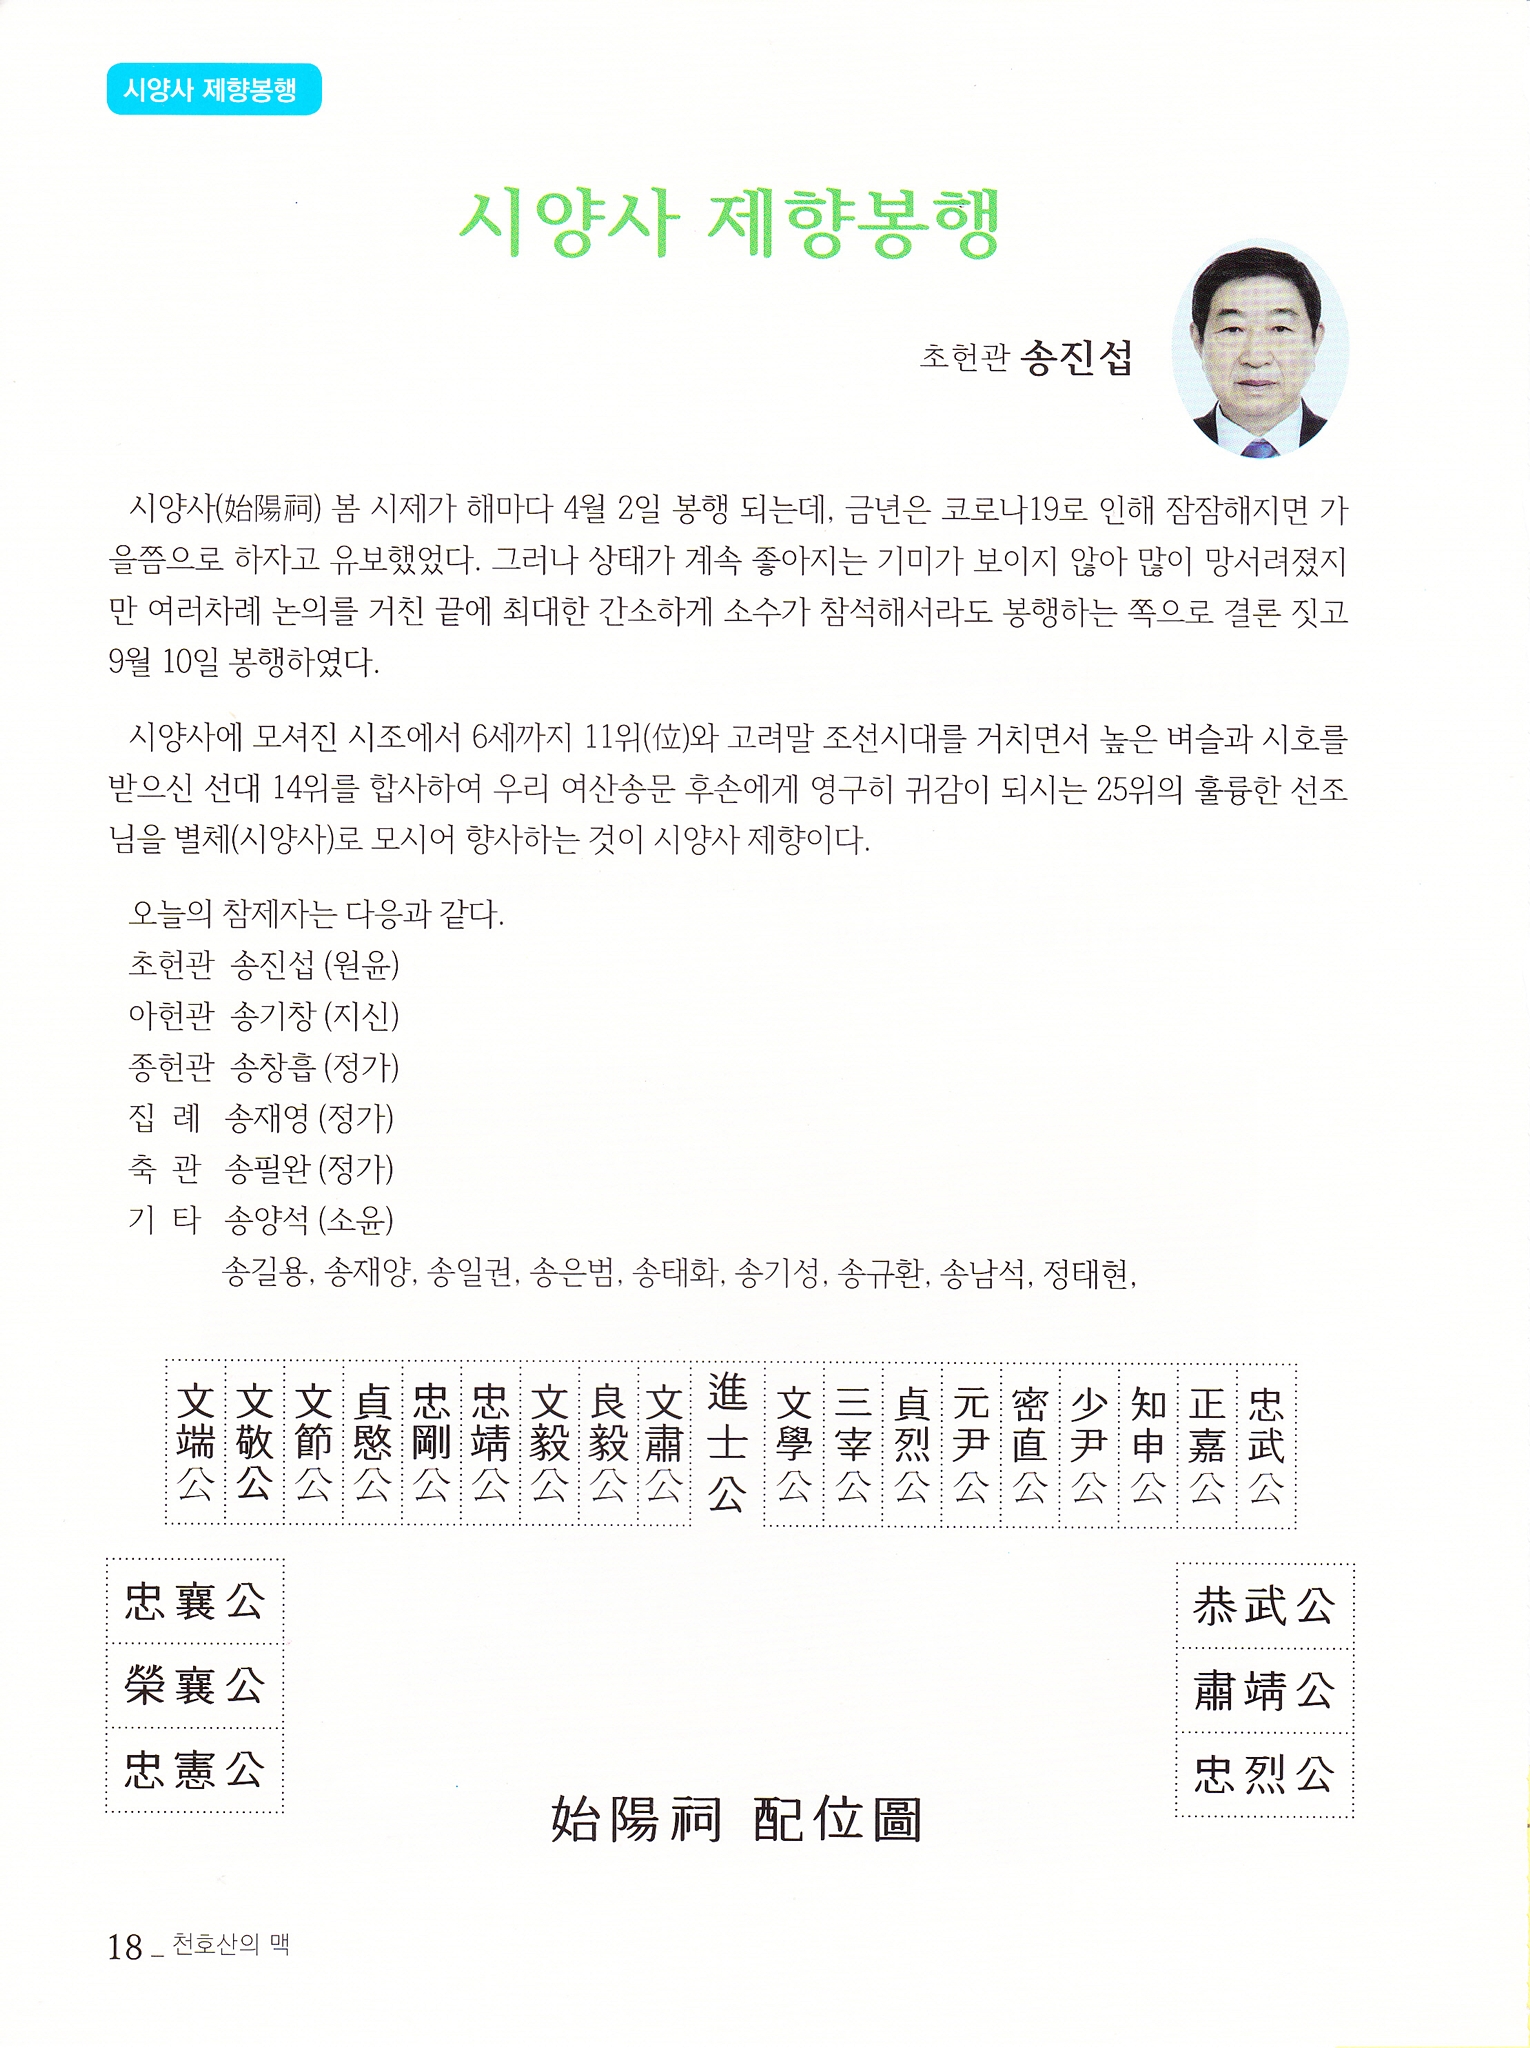 시양사 제향봉행
시양사 제향봉행
초헌관 송진섭
시양사(始陽祠) 봄 시제가 해마다 4월 2일 봉행 되는데, 금년은 코로나19로 인해 잠잠해지면 가
을쯤으로 하자고 유보했었다. 그러나 상태가 계속 좋아지는 기미가 보이지 않아 많이 망서려졌지
만 여러차례 논의를 거친 끝에 최대한 간소하게 소수가 참석해서라도 봉행하는 쪽으로 결론 짓고
9월 10일 봉행하였다.
시양사에 모셔진 시조에서 6세까지 11위(位)와 고려말 조선시대를 거치면서 높은 벼슬과 시호를
받으신 선대 14위를 합사하여 우리 여산송문 후손에게 영구히 귀감이 되시는 25위의 훌륭한 선조
님을 별체(시양사)로 모시어 향사하는 것이 시양사 제향이다.
오늘의 참제자는 다응과 같다.
초헌관 송진섭 (원윤)
아헌관 송기창 (지신)
종헌관 송창흡 (정가)
집 례 송재영 (정가)
축 관 송필완 (정가)
기 타 송양석 (소윤)
송길용, 송재양, 송일권, 송은범, 송태화, 송기성, 송규환, 송남석, 정태현,
文端公
文敬公
文節公
貞愍公
忠剛公
忠靖公
文毅公
良毅公
文肅公
進士公
文學公
三宰公
貞烈公
元尹公
密直公
少尹公
知申公
正嘉公
忠武公
忠襄公
榮襄公
忠憲公
恭武公
肅靖公
忠烈公
始陽祠 配位圖
18 _ 천호산의 맥